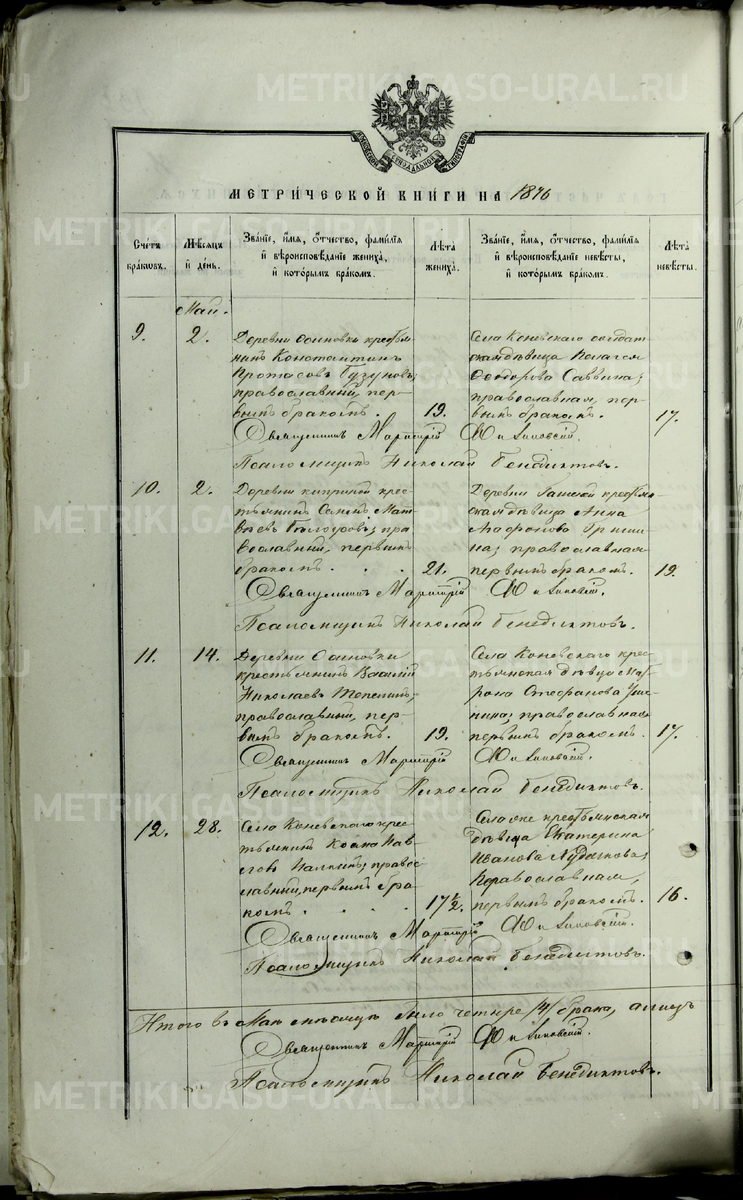 METRIKI.GASO-URAL.RU
МЕТРИЧЕСКОЙ КНИГИ НА 1876
Счетъ браковъ.
Мѣсяцъ и день.
Званіе, имя, отчество, фамилія и вѣроисповѣданіе жениха, и которымъ бракомъ.
Лѣта жениха.
Званіе, имя, отчество, фамилія и вѣроисповѣданіе невѣсты, и которымъ бракомъ.
Лѣта невѣсты.
Май.
9. 2.
Деревни Осиновки крестья
нинъ Константинъ
Протасовъ Гузуновъ;
православный, пер-
вымъ бракомъ. 19.
Села Коневскаго солдат
ская дѣвица Пелагея
Ѳеодорова Саввина;
православная, пер-
вымъ бракомъ. 17.
Священникъ Маркеллъ
Псаломщикъ Николай Бенедиктовъ.
10. 2.
Деревни крес-
тьянинъ Семенъ Мат
вѣевъ пра
вославный, первымъ
бракомъ. . . 21.
Деревни крестьян
ская дѣвица Анна
Агафонова Гриши
на; православная
первымъ бракомъ. 19.
Священникъ
Псаломщикъ Николай Бенедиктовъ.
11. 14.
Деревни Осиновки
крестьянинъ Василій
Николаевъ
православный, пер-
вымъ бракомъ. 19.
Села Коневскаго крес-
тьянская дѣвица Мат
рона Стефанова
православная
первымъ бракомъ. 17.
Священникъ
Псаломщикъ Николай Бенедиктовъ.
12. 28.
Села Коневскаго крес-
тьянинъ Іоаннъ Пав-
ловъ правос
лавный, первымъ бра-
комъ. . . . 17½.
Села оне крестьянская
дѣвица Екатерина
Иванова
Православная,
первымъ бракомъ. 16.
Священникъ
Псаломщикъ Николай Бенедиктовъ.
Итого въ Маѣ мѣсяцѣ было четыре /4/ брака,
Священникъ
Псаломщикъ Николай Бенедиктовъ.